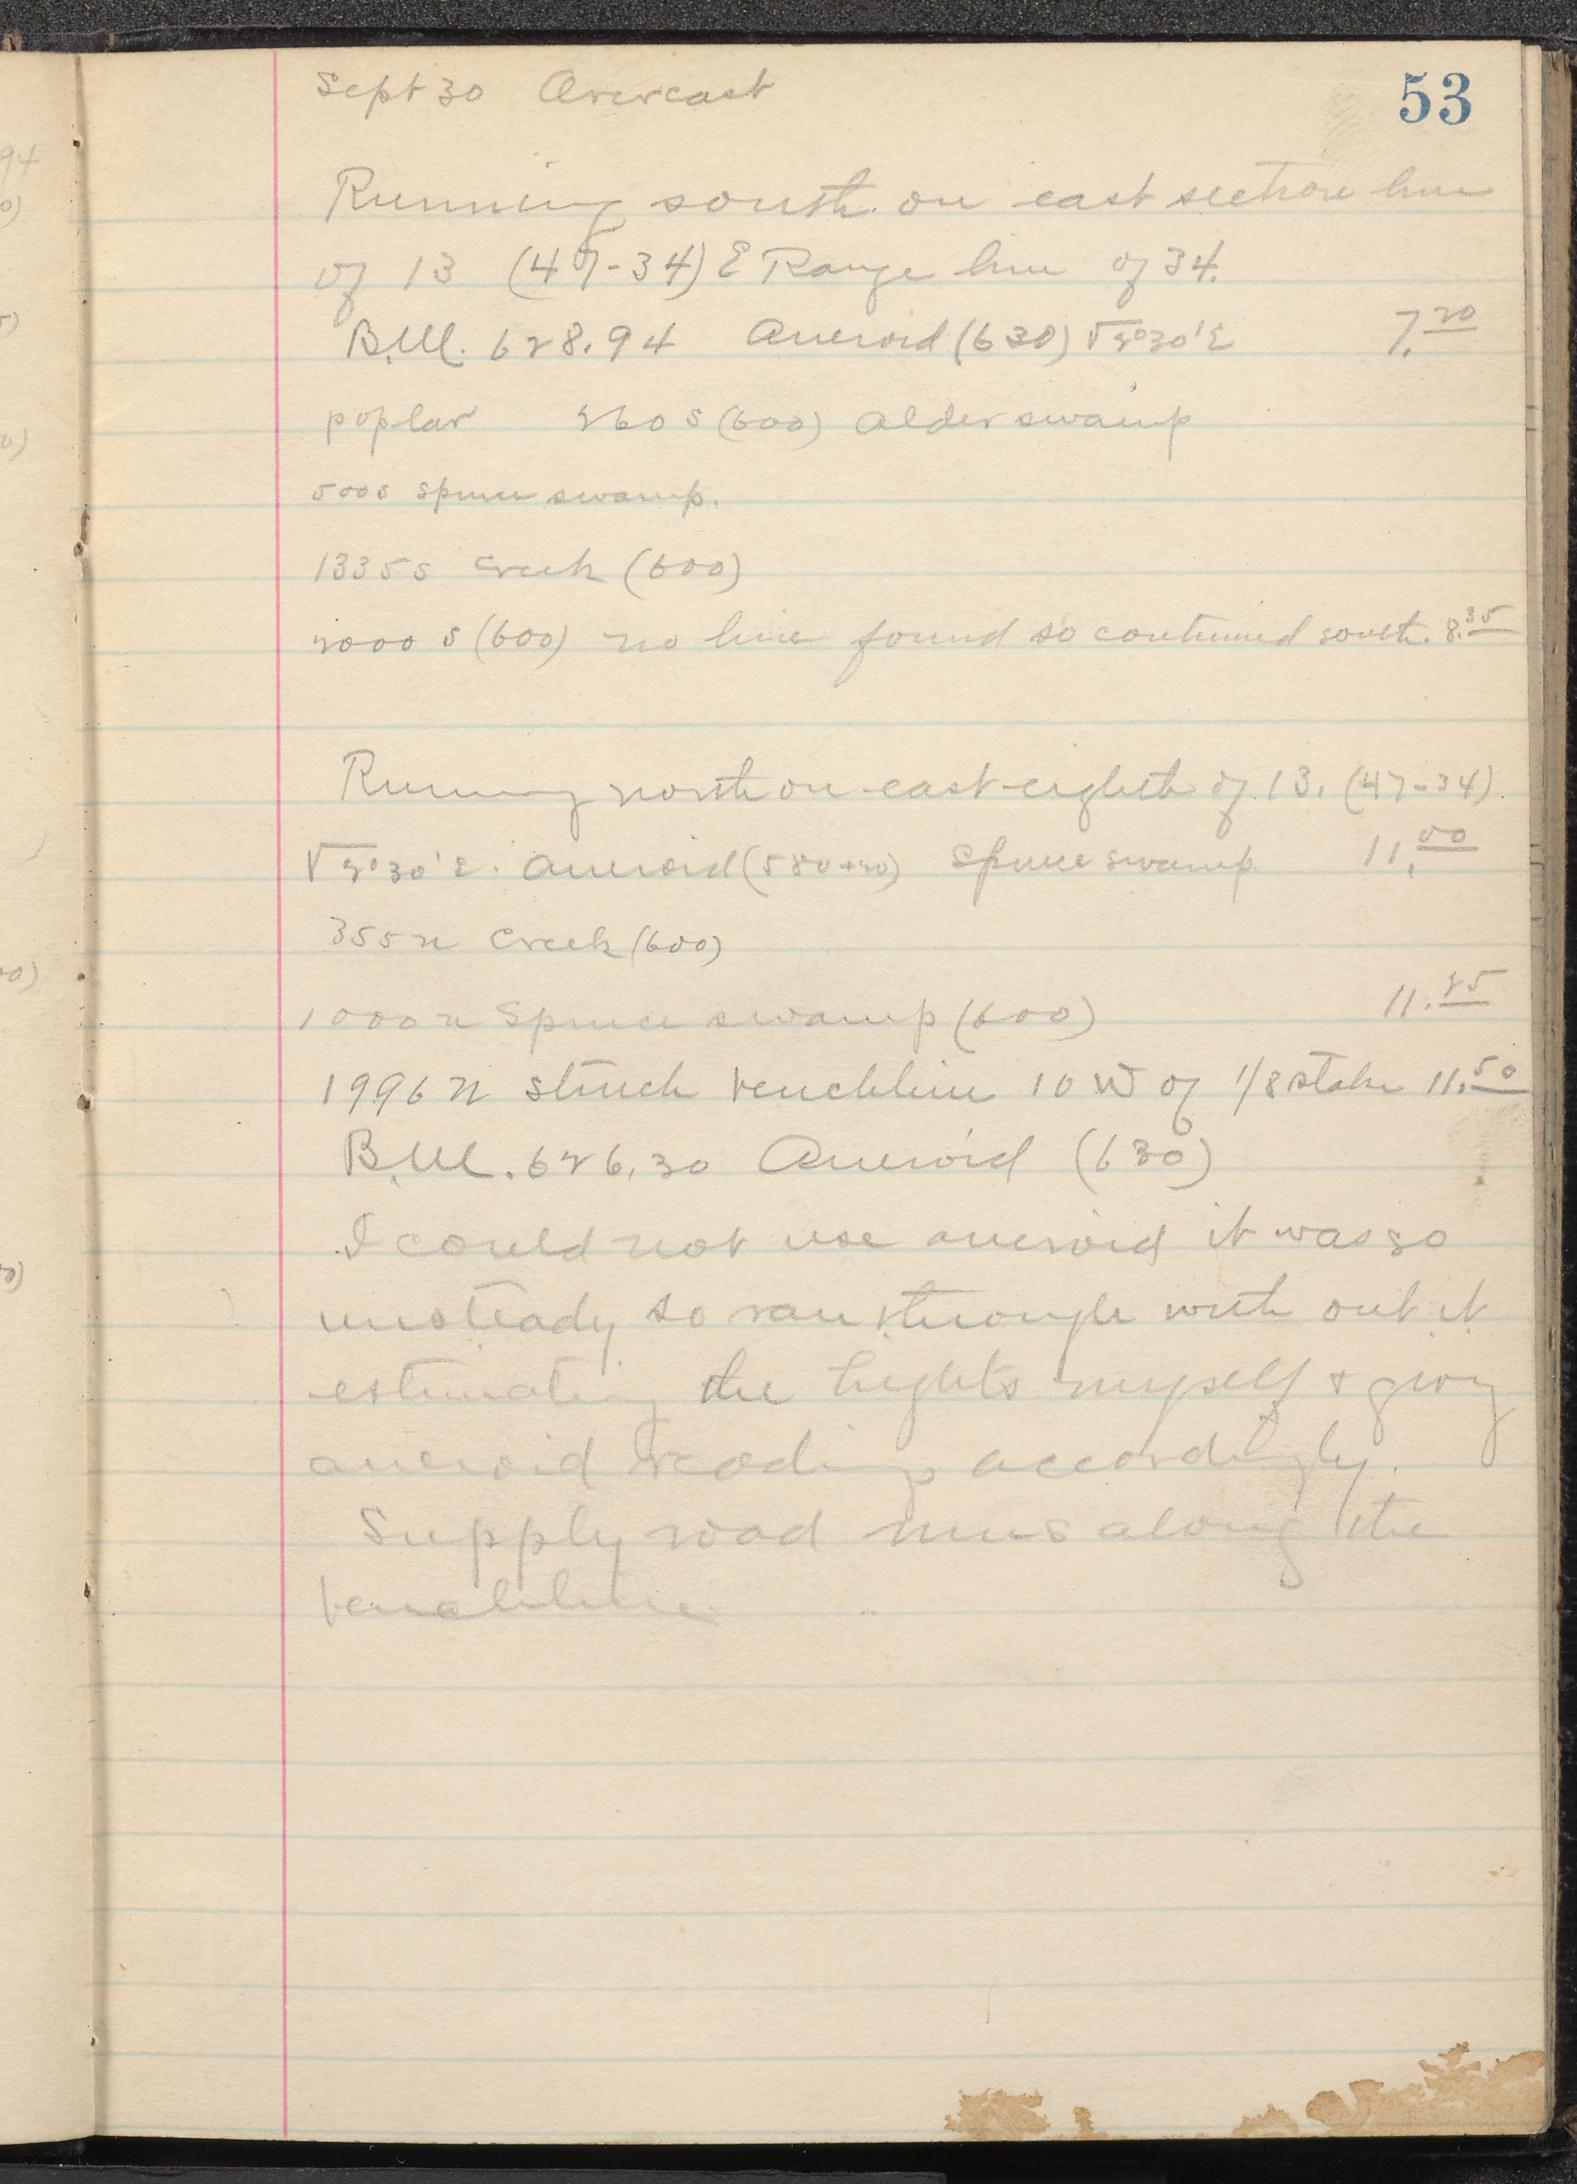 53
Sept 30 Overcast
Running south on east section line
of 13 (47-34) E Range line of 34.
B.M. 628.94 Aneroid (630) V 2°30'E 7.20
poplar 260 S (600) Alder swamp
500 S Spruce swamp.
1335 S Creek (600)
2000 S (600) no line found so continued south. 8.35
Running north on east eighth of 13. (47-34)
V 2°30'E. Aneroid (580+20) Spruce swamp 11.00
355 N Creek (600)
1000 N Spruce swamp (600) 11.25
1996 N Struck benchline 10 W of 1/8 stake 11.50
B.M. 626.30 Aneroid (630)
I could not use aneroid it was so
unsteady so ran through with out it
estimating the hights myself & giving
aneroid readings accordingly.
Supply road runs along the
benchline